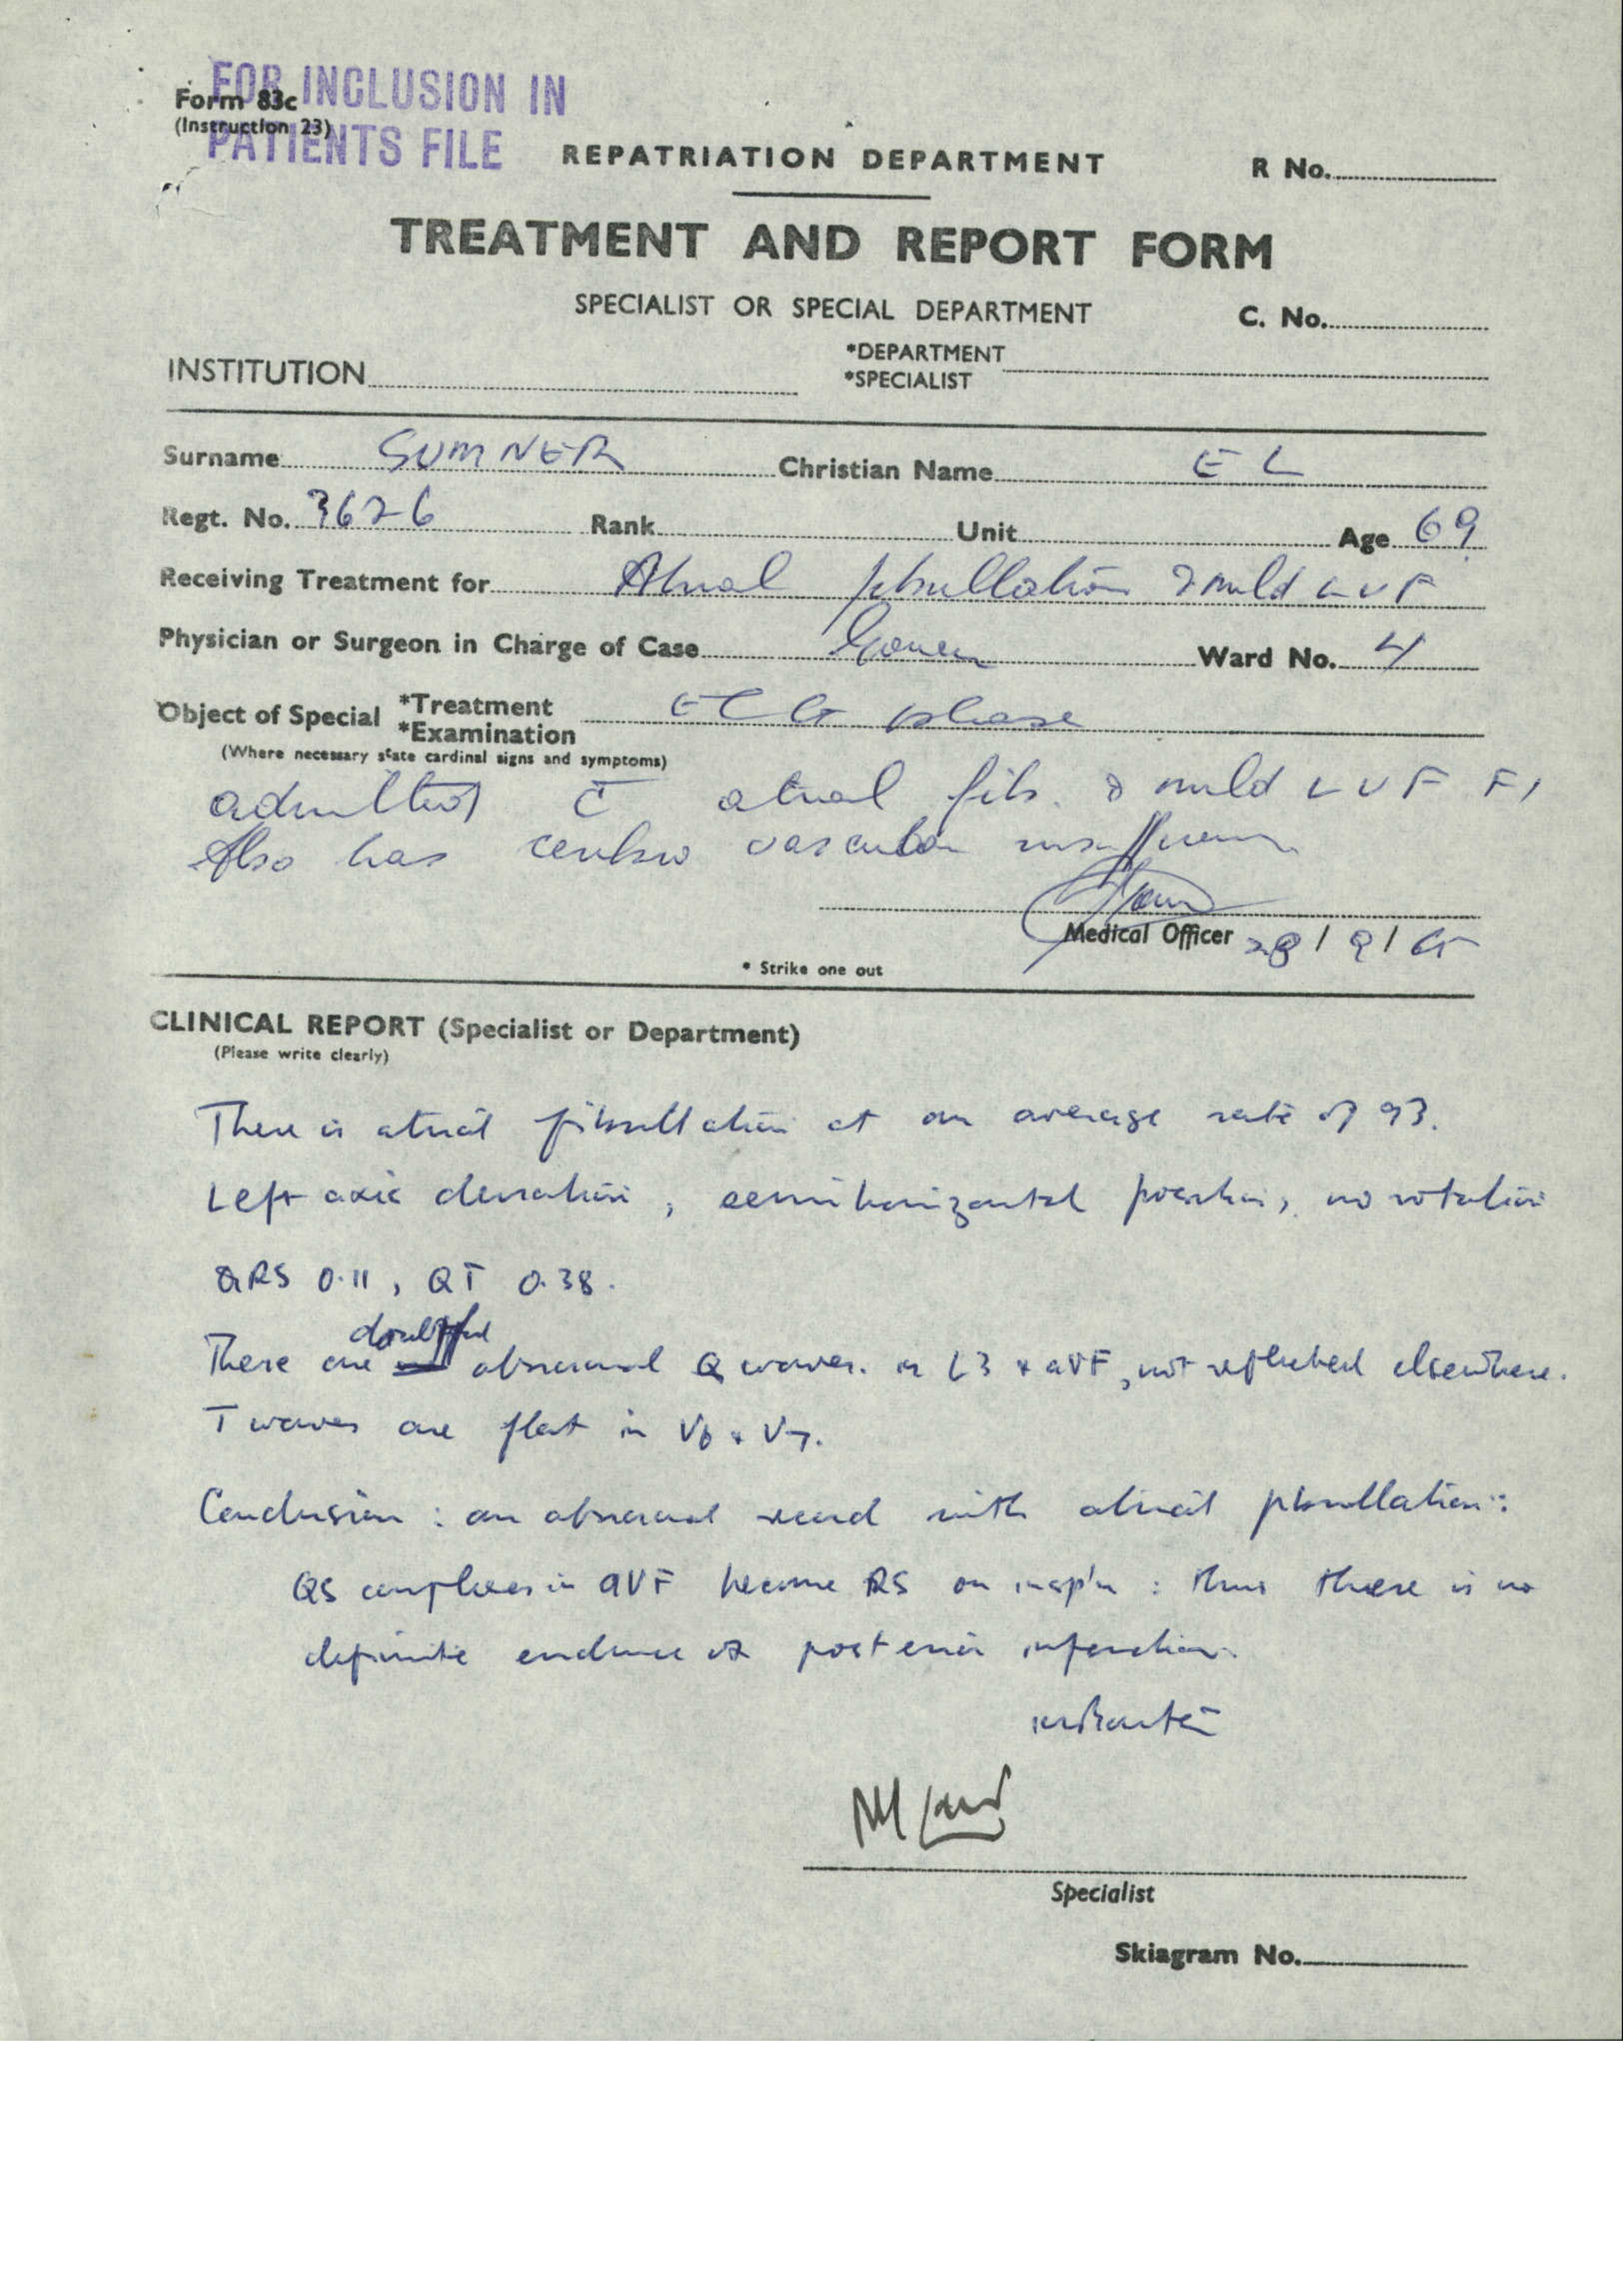 FOR INCLUSION IN
PATIENTS FILE
Form 83c
(Instruction 23)
REPATRIATION DEPARTMENT R No.
TREATMENT AND REPORT FORM
SPECIALIST OR SPECIAL DEPARTMENT C. No.
INSTITUTION *DEPARTMENT
*SPECIALIST
Surname SUMNER Christian Name E L
Regt. No. 3626 Rank Unit Age 69
Receiving Treatment for Atrial fibrillation & mild LVF
Physician or Surgeon in Charge of Case Ward No. 4
Object of Special *Treatment
*Examination ECG please
(Where necessary state cardinal signs and symptoms)
admitted c̄ atrial fib. & mild LVF
Also has cerebro vascular insufficiency
Medical Officer 28/9/65
* Strike one out
CLINICAL REPORT (Specialist or Department)
(Please write clearly)
There is atrial fibrillation at an average rate of 93.
Left axis deviation, semihorizontal position, no rotation
QRS 0.11, QT 0.38.
doubtful
There are abnormal Q waves in L3 + aVF, not reflected elsewhere.
T waves are flat in V6 + V7.
Conclusion: an abnormal record with atrial fibrillation:
QS complexes in aVF become RS on insp'n: thus there is no
definite evidence of posterior infarction.
Specialist
Skiagram No.